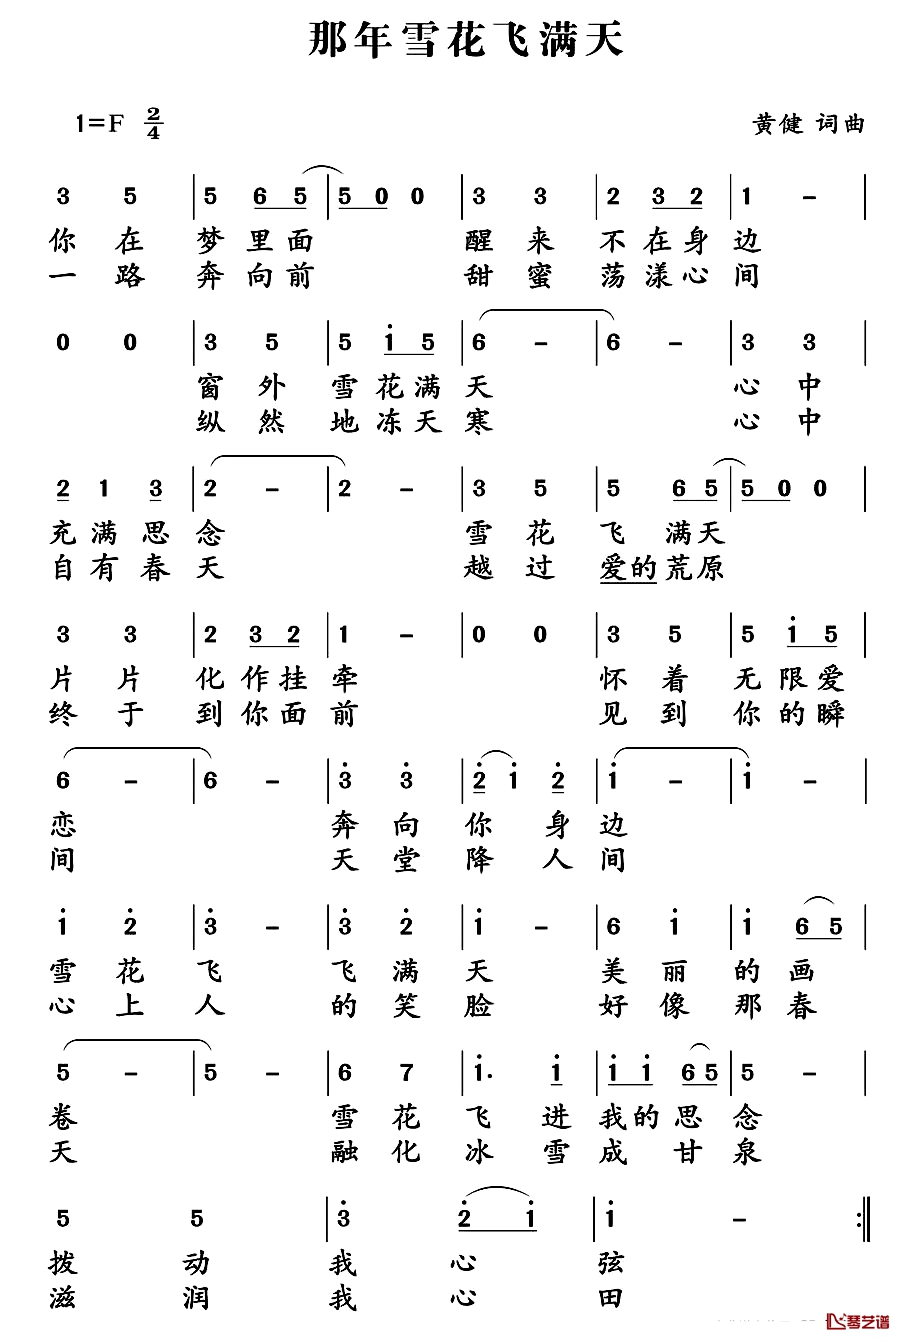 那年雪花飞满天
1=F 2/4 黄健 词曲
3 5 | 5 6 5 | 5 0 0 | 3 3 | 2 3 2 | 1 - |
你在梦里面 醒来不在身边
一路奔向前 甜蜜荡漾心间
0 0 | 3 5 | 5 1 5 | 6 - | 6 - | 3 3 |
窗外雪花满天 心中
纵然地冻天寒 心中
2 1 3 | 2 - | 2 - | 3 5 | 5 6 5 | 5 0 0 |
充满思念 雪花飞满天
自有春天 越过爱的荒原
3 3 | 2 3 2 | 1 - | 0 0 | 3 5 | 5 1 5 |
片片化作挂牵 怀着无限爱
终于到你面前 见到你的瞬
6 - | 6 - | 3 3 | 2 1 2 | 1 - | 1 - |
恋 奔向你身边
间 天堂降人间
1 2 | 3 - | 3 2 | 1 - | 6 1 | 1 6 5 |
雪花飞飞满天美丽的画
心上人的笑脸好像那春
5 - | 5 - | 6 7 | 1· 1 | 1 1 6 5 | 5 - |
卷 雪花飞进我的思念
天 融化冰雪成甘泉
5 5 | 3 2 1 | 1 - :||
拨动我心弦
滋润我心田
飞琴艺谱